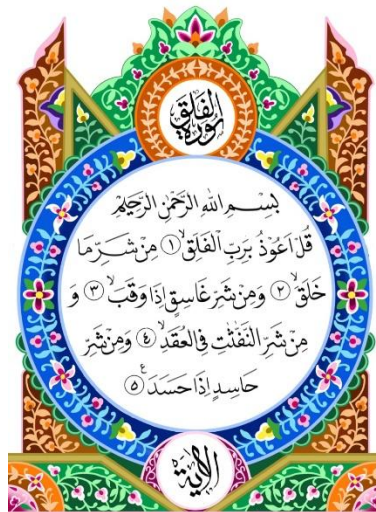 سورة الفلق
بِسْمِ اللهِ الرَّحْمٰنِ الرَّحِيْمِ
قُلْ اَعُوْذُ بِرَبِّ الْفَلَقِۙ ١ مِنْ شَرِّ مَا
خَلَقَۙ ٢ وَمِنْ شَرِّ غَاسِقٍ اِذَا وَقَبَۙ ٣ وَ
مِنْ شَرِّ النَّفّٰثٰتِ فِى الْعُقَدِۙ ٤ وَمِنْ شَرِّ
حَاسِدٍ اِذَا حَسَدَ ࣖ ٥
الاية